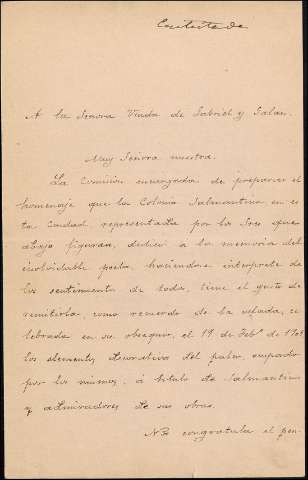 Contestada
A la Señora Viuda de Gabriel y Galan.
Muy Señora nuestra.
La Comisión encargada de preparar el
homenaje que la Colonia Salmantina en es
ta Ciudad representada por los Sres que
abajo figuran, dedicó á la memoria del
inolvidable poeta, haciendose interprete de
los sentimientos de toda, tiene el gusto de
remitirla, como recuerdo de la velada, ce
lebrada en su obsequio, el 19 de Febº de
los elementos decorativos del palco, ocupado
por los mismos, á titulo de Salmantinos
y admiradores de sus obras.
Nos congratula el pen-